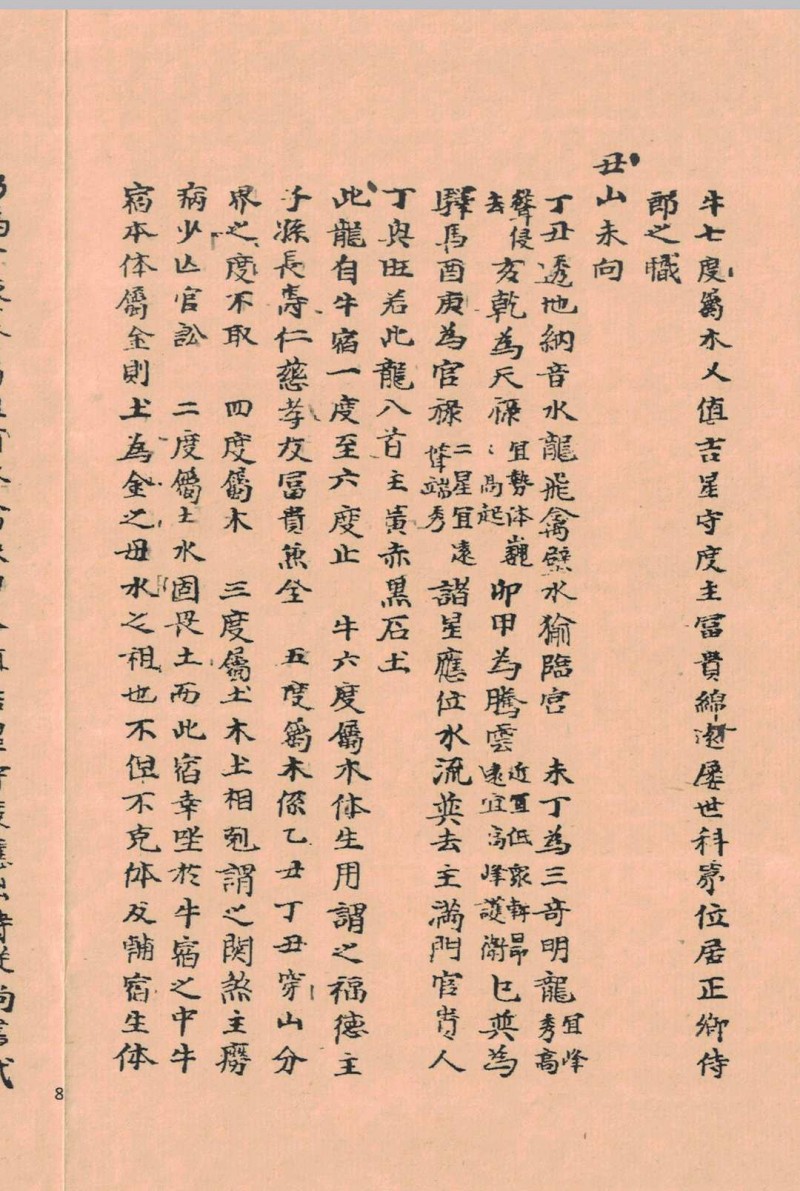 牛七度屬木又值吉星守度主冨貴綿遠屡世科第位居正卿侍
郎之職
丑山未向
丁丑透地納音水龍飛禽壁水㺄臨宮　未丁為三奇明龍宜峰秀高
聳侵去亥乾為天祿宜勢体巍ミ高起卯甲為騰雲近宜低聚軒昂遠宜高峰護衛巳巽為
驛馬酉庚為官祿二星宜遠聳端秀諸星應位水流巽去主滿門官貴人
丁興旺若此龍八首主黄赤黑石土
此龍自牛宿一度至六度止　牛六度屬木体生用謂之福德主
子孫長壽仁慈孝友冨貴兼全　五度屬木係乙丑丁丑穿山分
界之度不取　四度屬木　三度屬土木土相剋謂之関煞主癆
病少亡官訟　二度屬土水固畏土而此宿幸坐於牛宿之中牛
宿本体屬金則土為金之母水之祖也不但不克体反輔宿生体